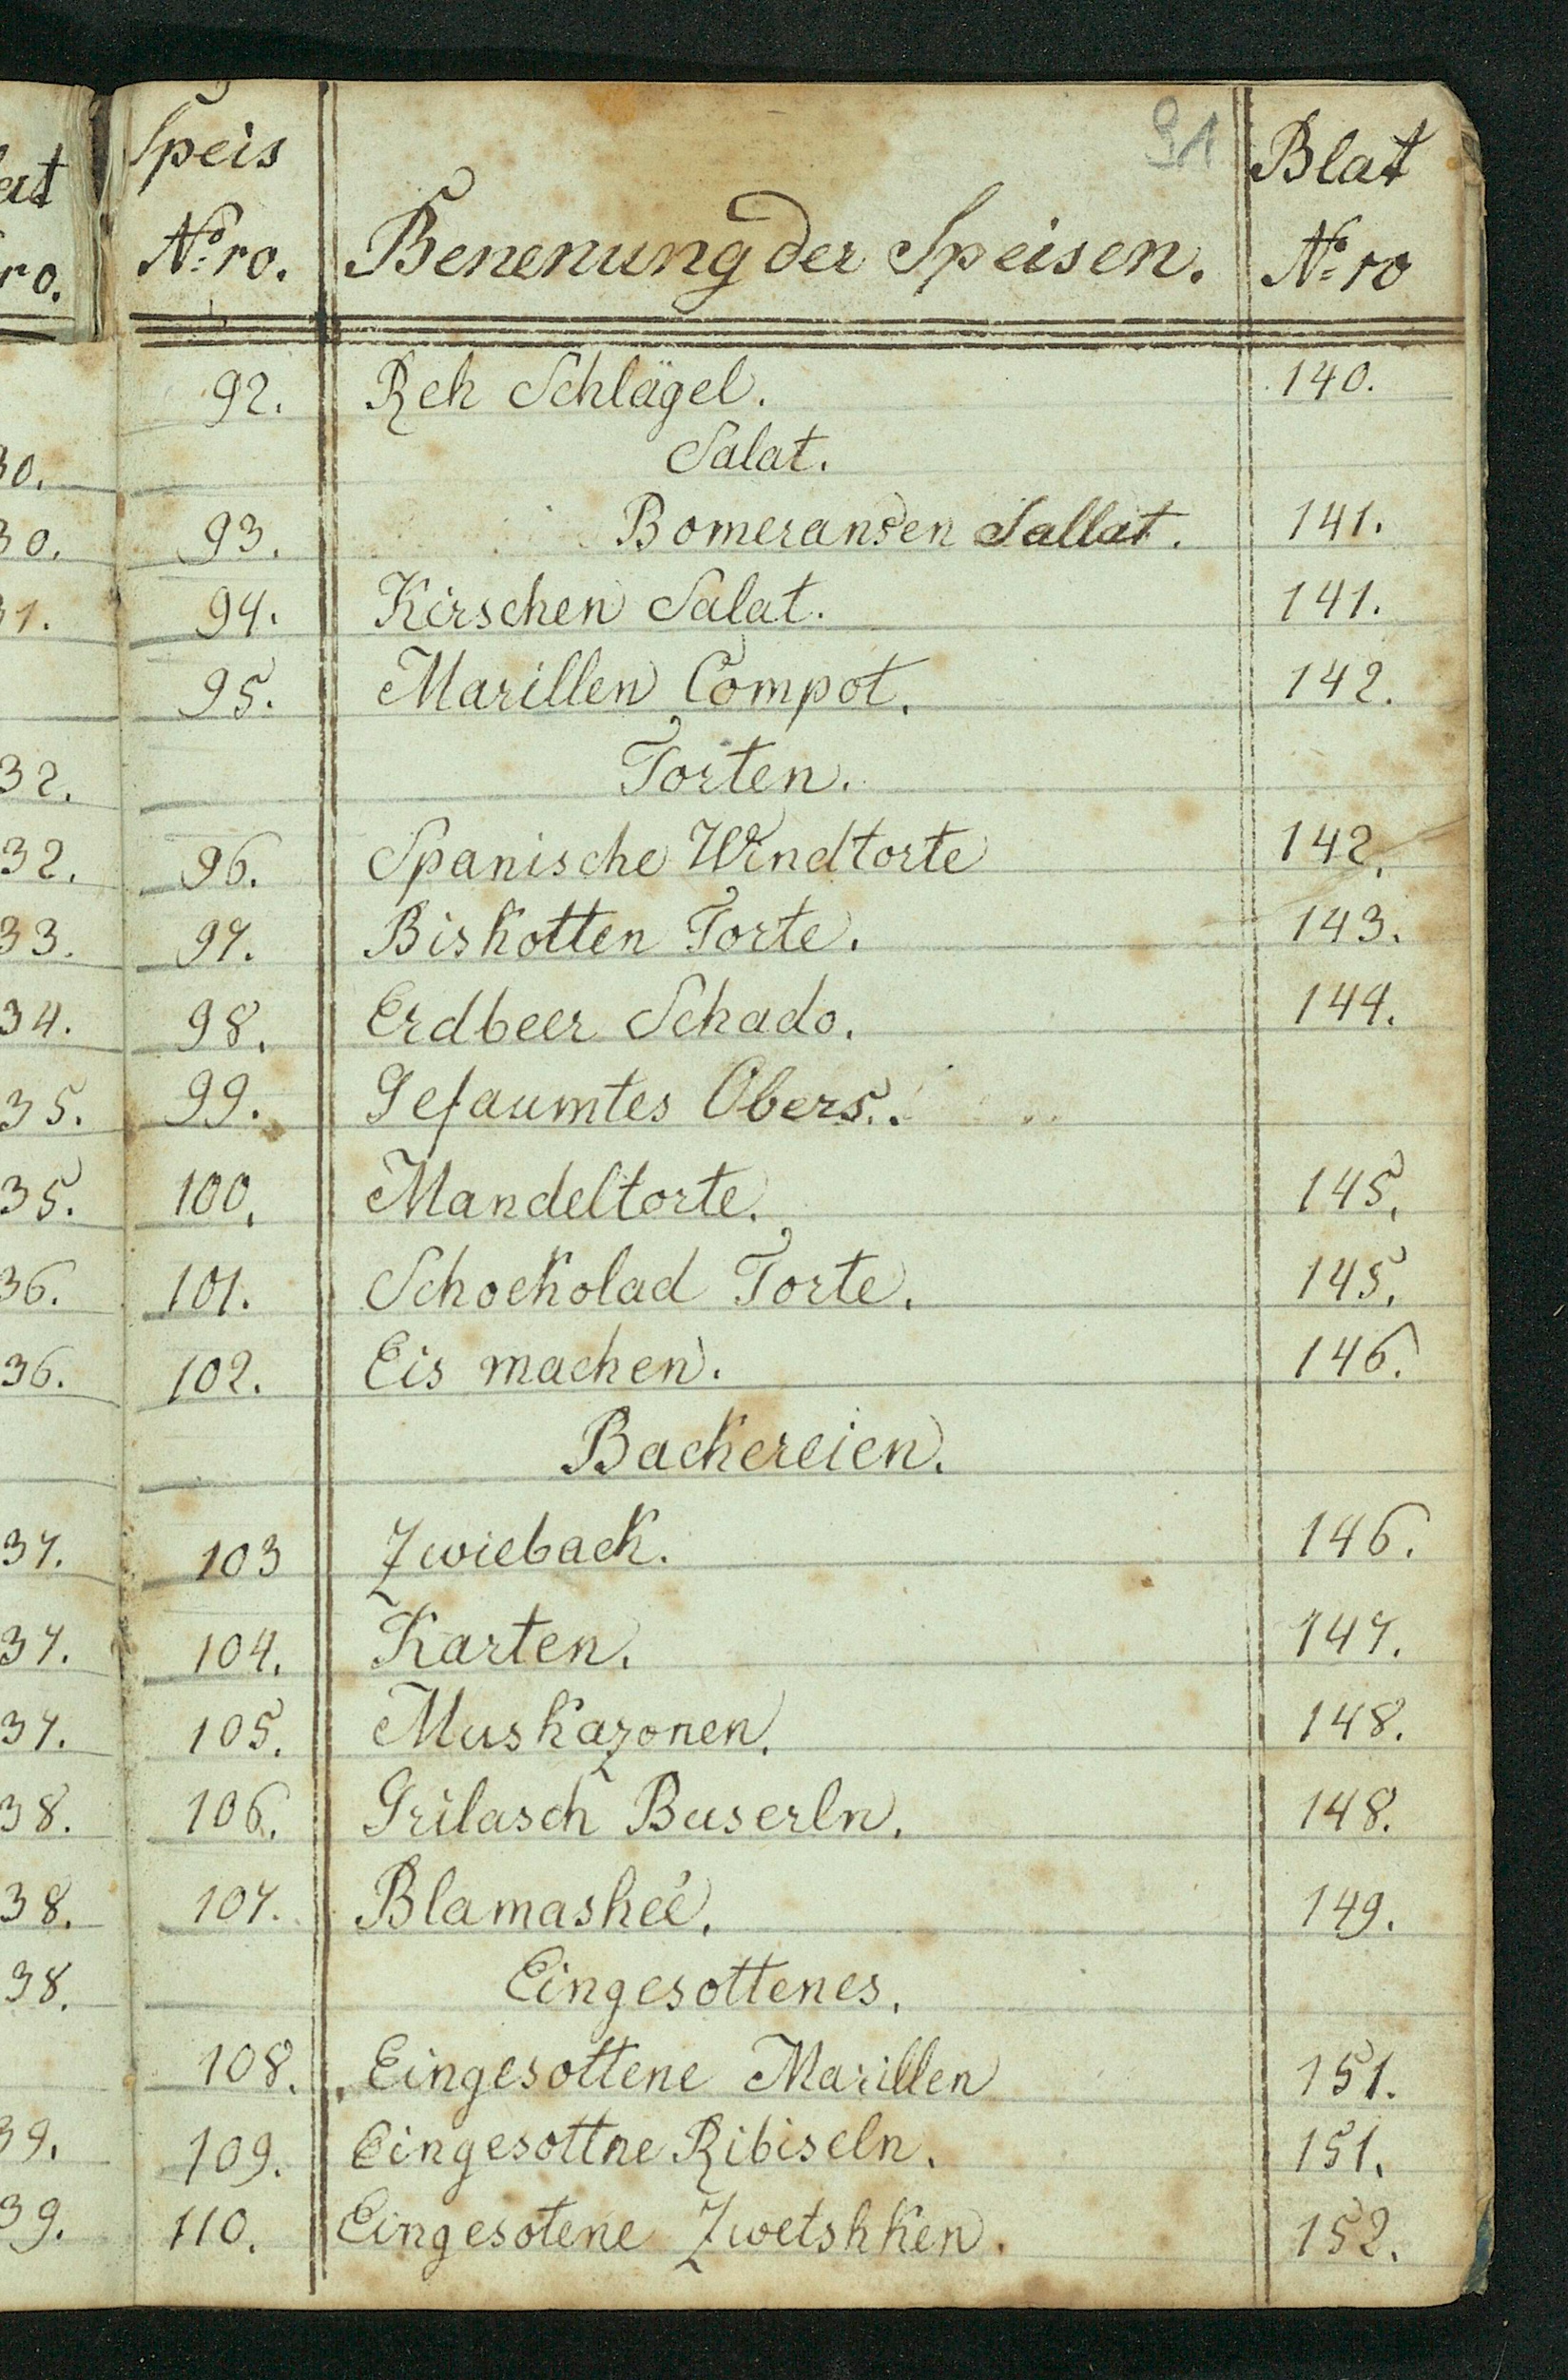 91
Speis Nro. Benenung der Speisen. Blat Nro
92. Reh Schlägel. 140.
Salat.
93. Bomeransen Sallat. 141.
94. Kirschen Salat. 141.
95. Marillen Compot. 142.
Torten.
96. Spanische Windtorte 142.
97. Biskotten Torte. 143.
98. Erdbeer Schado. 144.
99. Gefaumtes Obers.
100. Mandeltorte. 145.
101. Schockolad Torte. 145.
102. Eis machen. 146.
Backereien.
103 Zwieback. 146.
104. Karten. 147.
105. Muskazonen. 148.
106. Grilasch Buserln. 148.
107. Blamasheé. 149.
Eingesottenes.
108. Eingesottene Marillen 151.
109. Eingesottne Ribiseln. 151.
110. Eingesotene Zwetshken. 152.